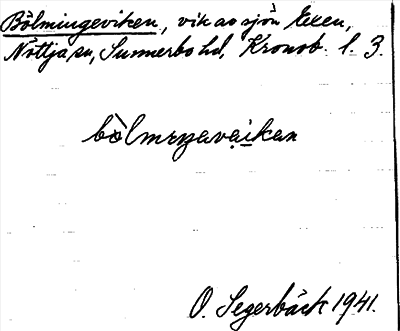 Bölmingeviken, vik av sjön Exen,
Nöttja sn, Sunnerbo hd, Kronob. l. 3.
bòlmeŋavạikan
O. Segerbäck 1941.